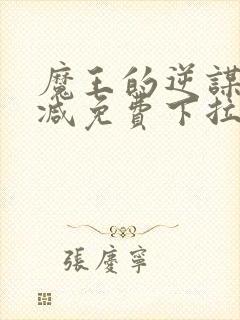 魔王的逆謀
减免費下拉
張慶寧